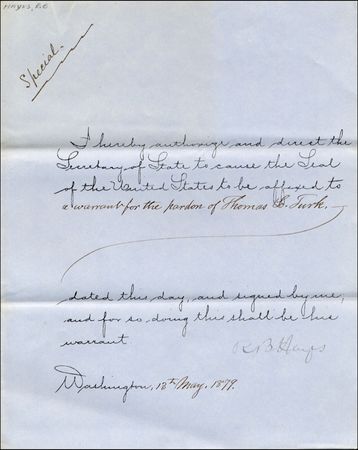 HAYES, R.B
Special.
I hereby authorize and direct the
Secretary of State to cause the Seal
of the United States to be affixed to
a warrant for the pardon of Thomas B. Turk.
dated this day, and signed by me;
and for so doing this shall be his
warrant
R.B Hayes
Washington, 13th May, 1879.